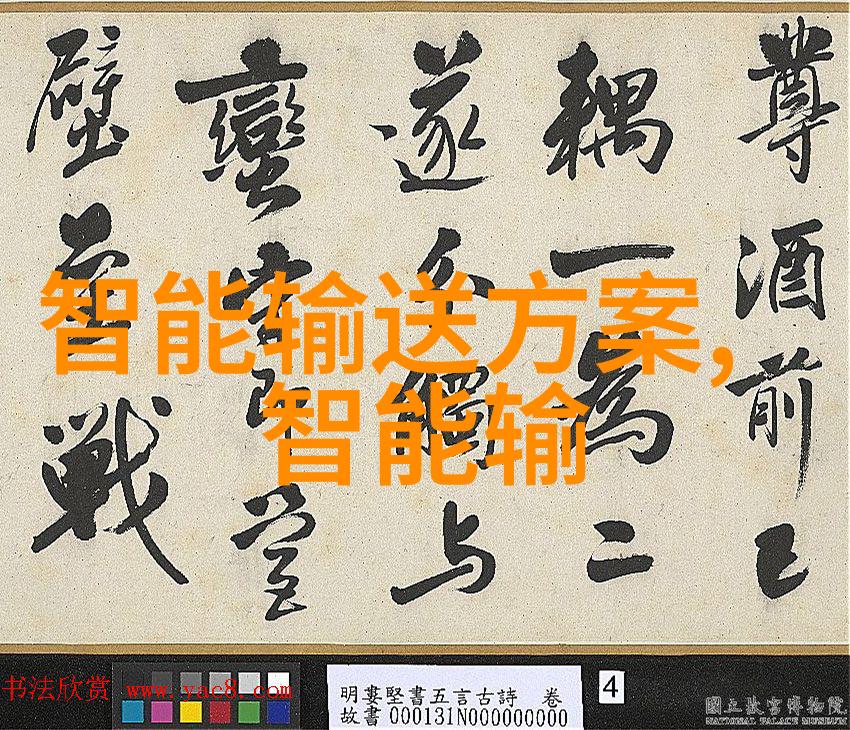 尊酒前已
耦一為二
遂觸与
蠻
壁戰
智能输送方案,
智能输
书法欣赏 www.yac8.com
明婁堅書五言古詩 卷
故書000131N000000000
4
國立故宮博物院
NATIONAL PALACE MUSEUM